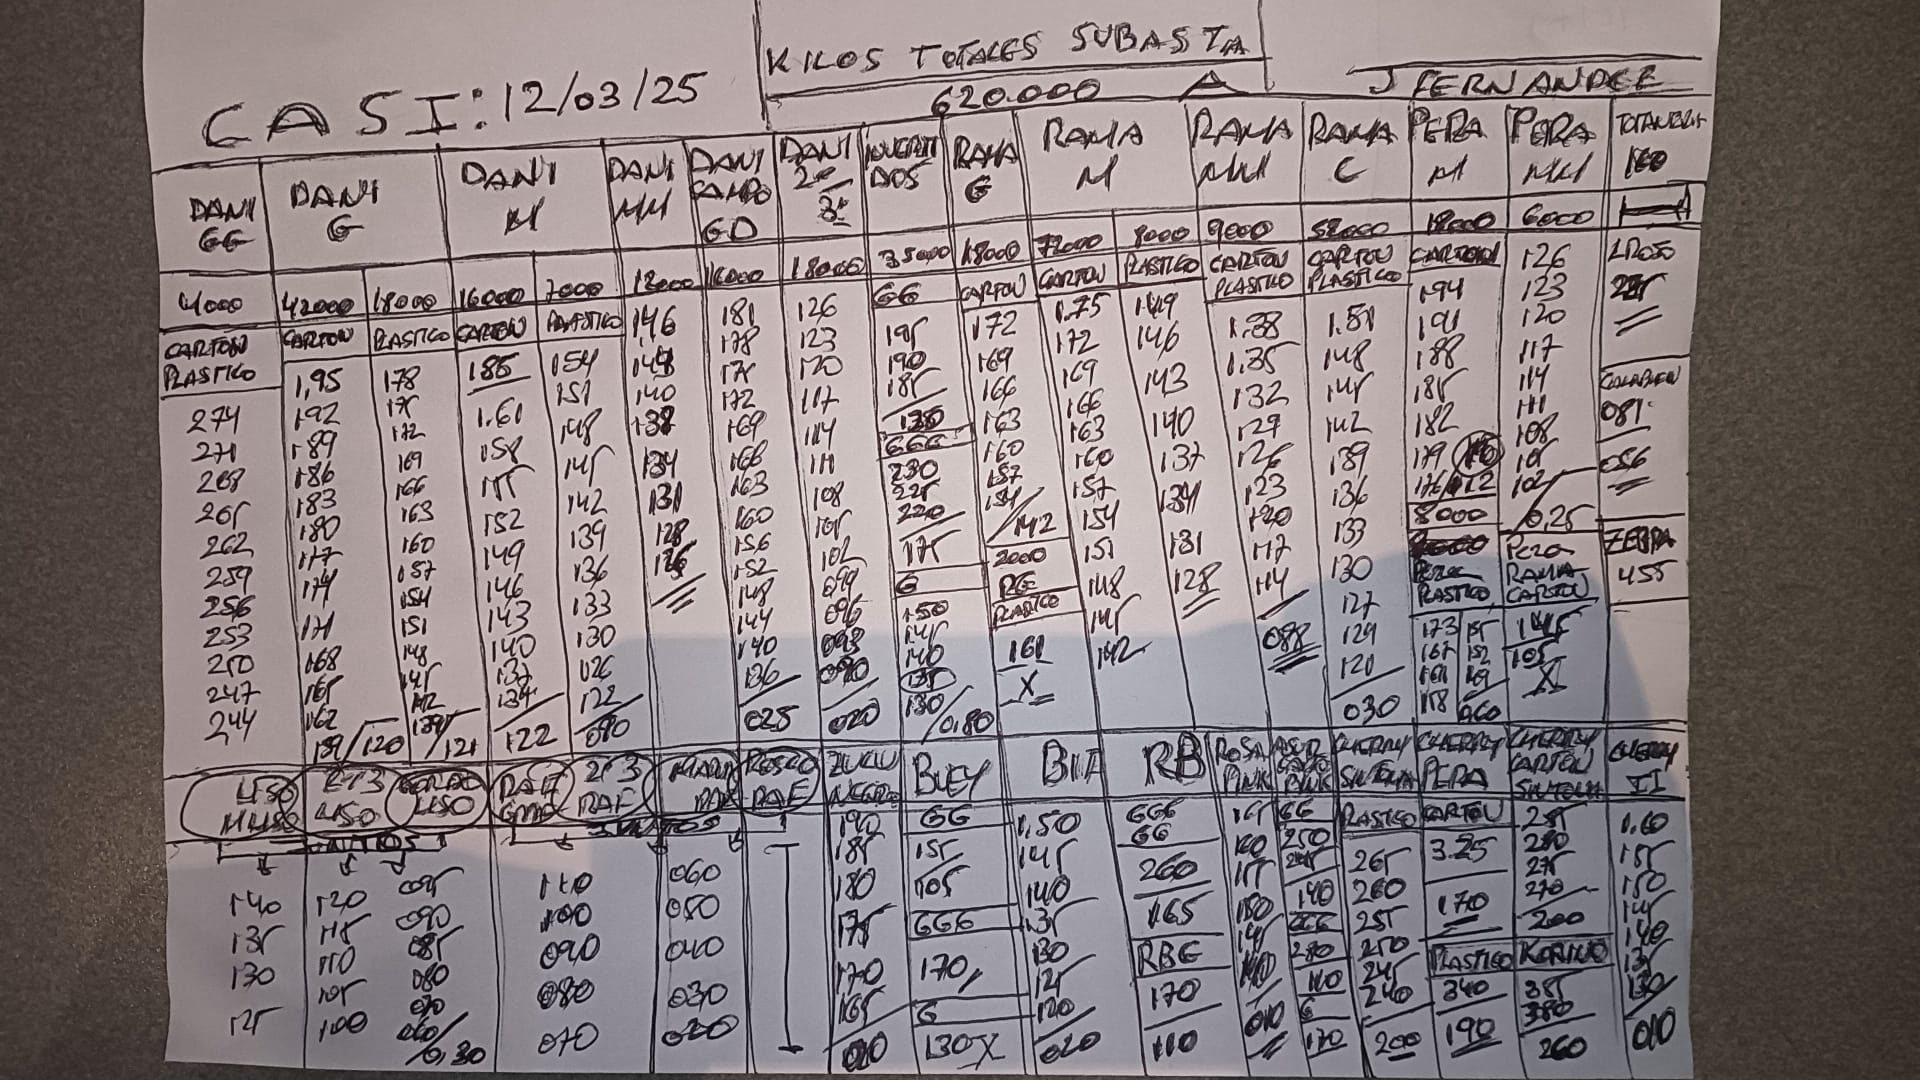 KILOS TOTALES SUBASTA
620.000 A
CASI: 12/03/25
J FERNANDEZ
DANI GG
4000
CARTON
PLASTICO
274
271
268
265
262
259
256
253
250
247
244
DANI G
42000
CARTON
1,95
192
189
186
183
180
177
174
171
168
165
162
159/120
18000
PLASTICO
178
175
172
169
166
163
160
157
154
151
148
145
142
139/121
DANI M
16000
CARTON
185
1.61
158
155
152
149
146
143
140
137
134
122
7000
PLASTICO
154
151
148
145
142
139
136
133
130
126
122
090
DANI MM
146
140
134
131
128
DANI CAMPO GD
16000
181
178
175
172
169
166
163
160
156
152
148
144
140
136
025
DANI 2ª 3ª
18000
126
123
120
117
114
111
108
105
102
099
096
093
090
020
35000
GG
195
190
185
130
GGG
230
225
220
175
G
150
145
140
135
130/0,80
RAMA G
18000
CARTON
172
169
166
163
160
157
154/142
2000
RG
PLASTICO
161
X
RAMA M
72000
CARTON
1.75
172
169
166
163
160
157
154
151
148
145
142
8000
PLASTICO
149
146
143
140
137
134
131
128
RAMA MM
9000
CARTON
PLASTICO
1.38
1.35
132
129
126
123
120
117
114
088
RAMA C
CARTON
PLASTICO
1.51
148
145
142
139
136
133
130
127
124
121
030
PERA M
CARTON
194
191
188
185
182
179
8000
PERA
PLASTICO
173
167
161
158
155
152
149
060
PERA MM
6000
126
123
120
117
114
111
108
105
102
0,25
PERA
RAMA
CARTON
145
105
X
160
LROSO
225
081
056
ZEBRA
455
LISO
140
135
130
125
2Y3
LISO
120
115
110
105
100
LISO
095
090
085
080
070
060/0,30
RAF
2Y3
RAF
110
100
090
080
070
RAF
060
050
040
030
020
NEGRO
190
185
180
175
170
165
020
BUEY
GG
155
105
GGG
170
G
130X
1,50
145
140
135
130
125
120
020
RB
GGG
GG
260
165
RBG
170
110
ROSA
PINK
165
160
155
150
145
140
010
PINK
GG
250
245
140
GGG
280
110
G
170
CHERRY
PLASTICO
265
260
255
250
245
240
200
CHERRY
PERA
CARTON
3.25
170
PLASTICO
340
190
CHERRY
CARTON
285
280
275
270
200
385
380
260
CHERRY
II
1.60
155
150
145
140
135
130
010